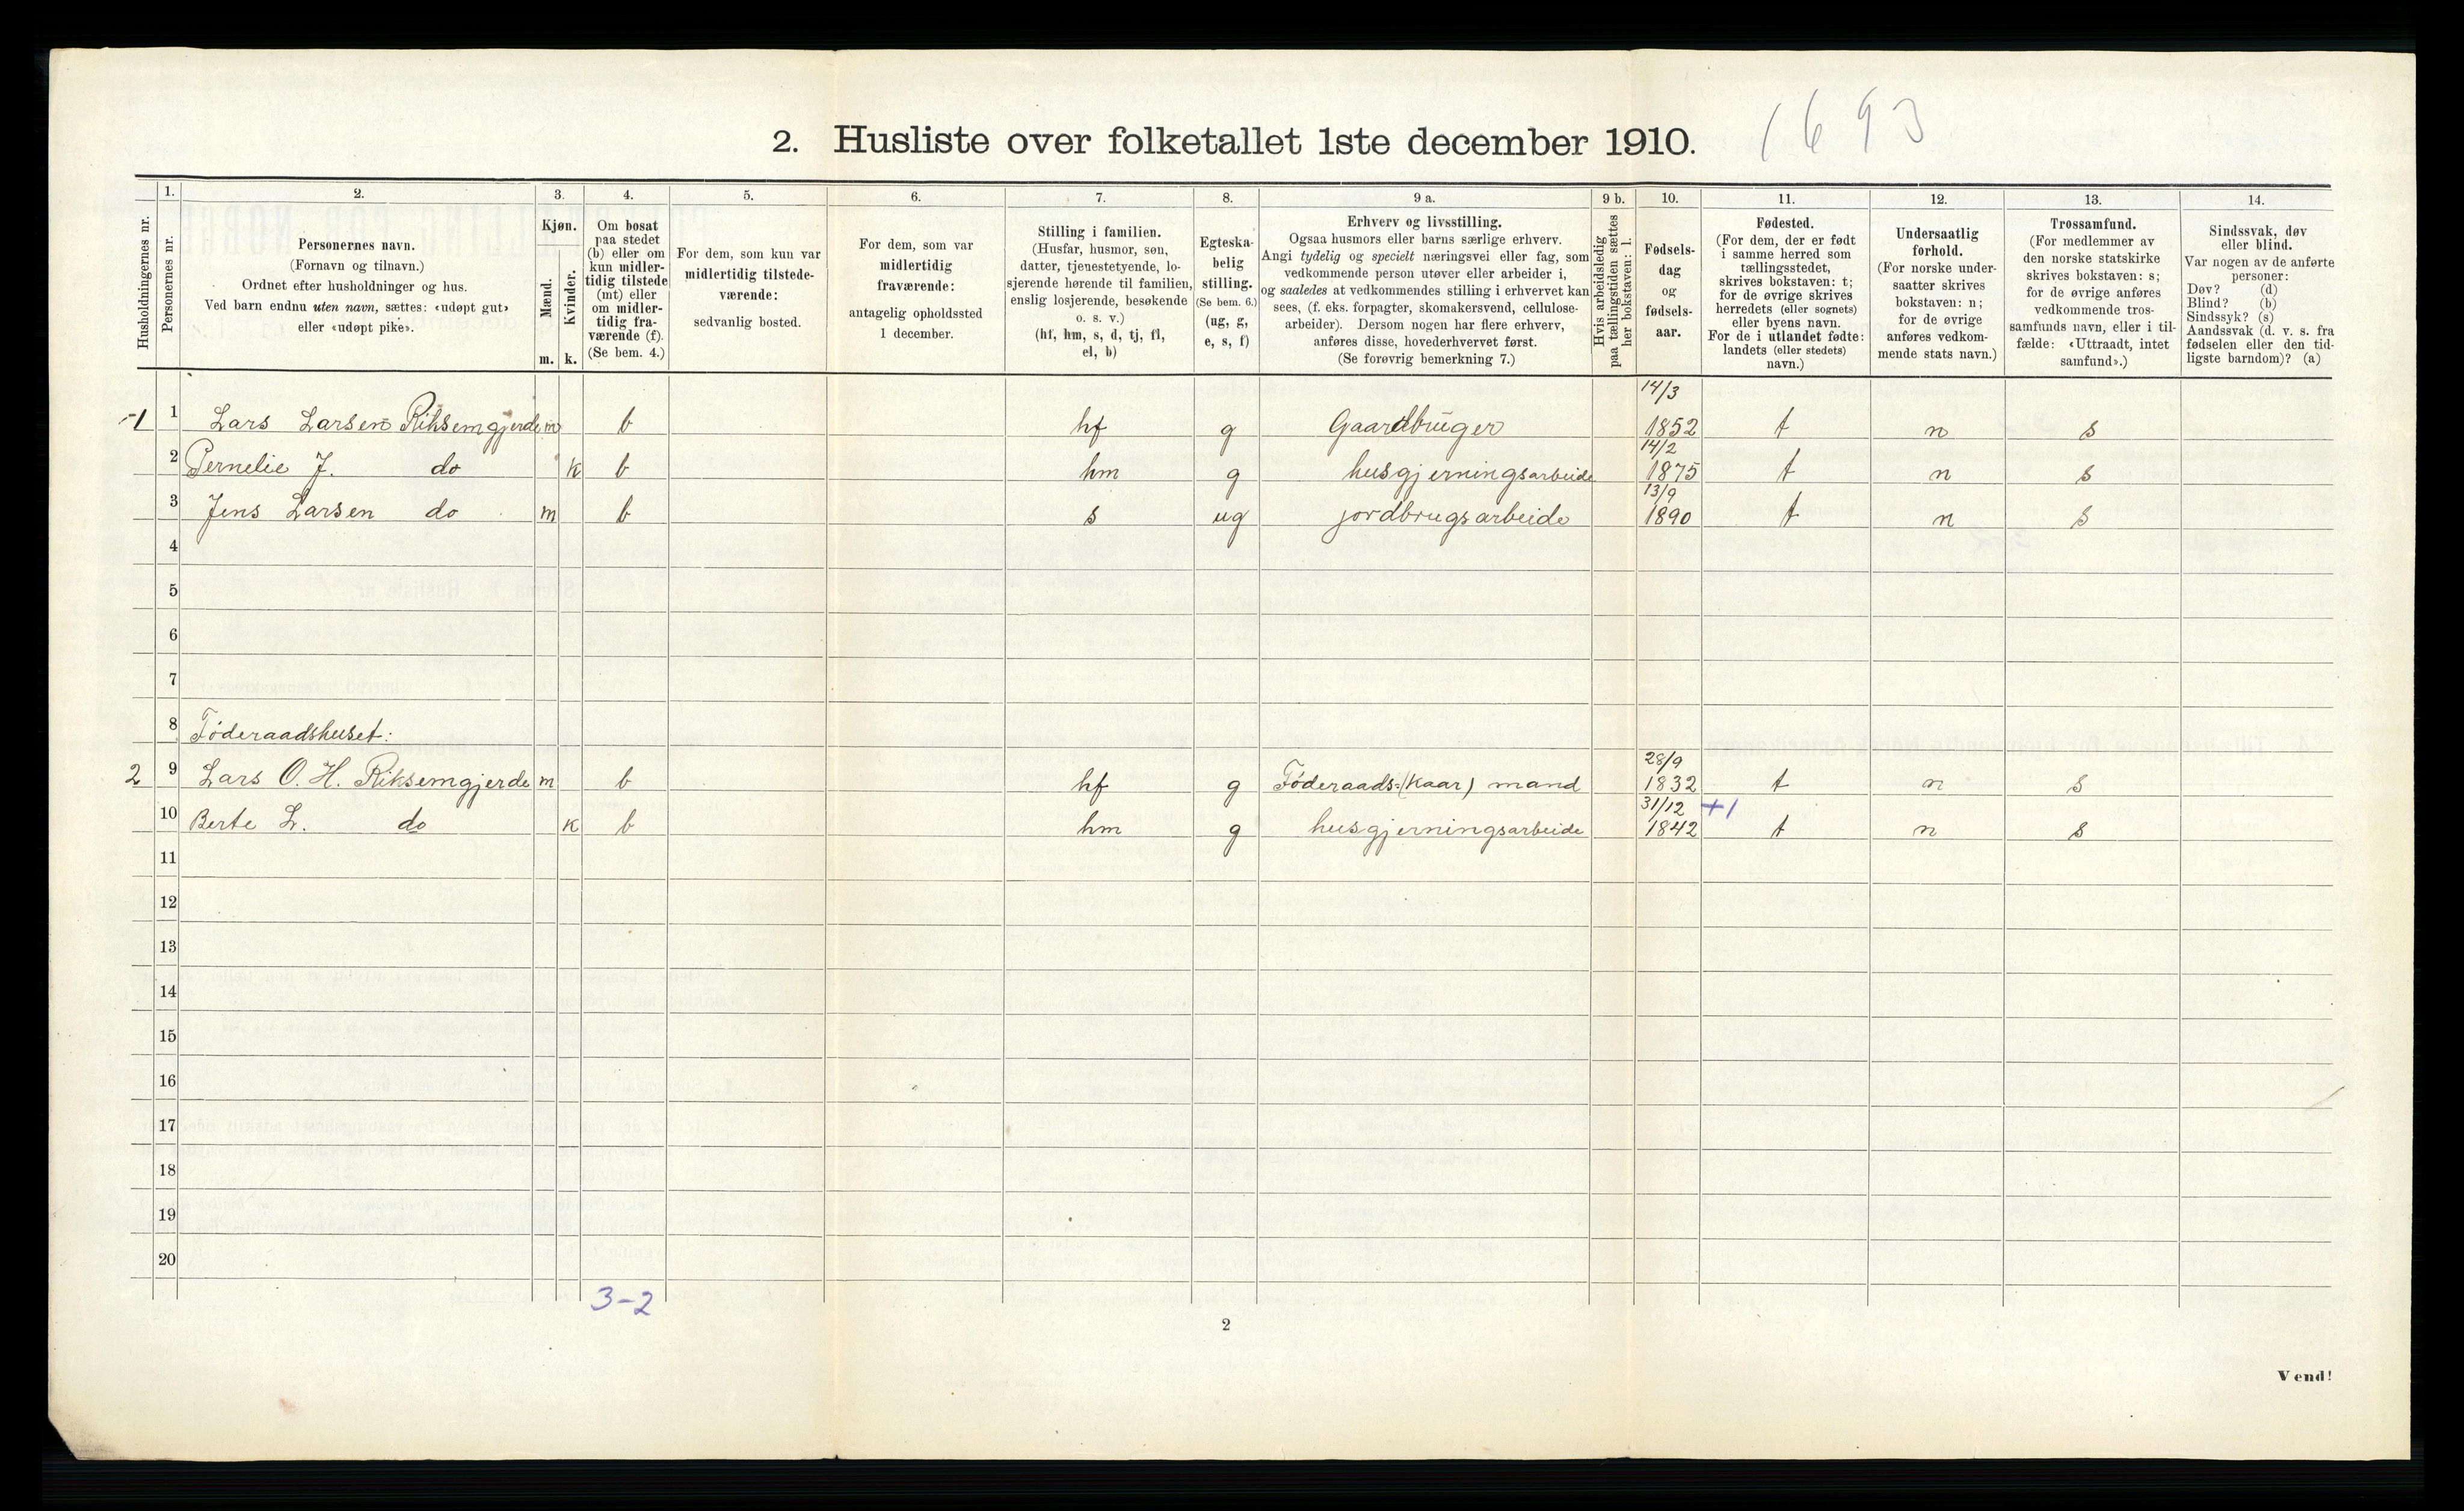 2. Husliste over folketallet 1ste december 1910.
1693
1. 2. 3. 4. 5. 6. 7. 8. 9 a. 9 b. 10. 11. 12. 13. 14.
Husholdningernes nr.
Personernes nr.
Personernes navn.
(Fornavn og tilnavn.)
Ordnet efter husholdninger og hus.
Ved barn endnu uten navn, sættes: «udøpt gut»
eller «udøpt pike».
Kjøn.
Mænd.
Kvinder.
m. k.
Om bosat
paa stedet
(b) eller om
kun midler-
tidig tilstede
(mt) eller
om midler-
tidig fra-
værende (f).
(Se bem. 4.)
For dem, som kun var
midlertidig tilstede-
værende:
sedvanlig bosted.
For dem, som var
midlertidig
fraværende:
antagelig opholdssted
1 december.
Stilling i familien.
(Husfar, husmor, søn,
datter, tjenestetyende, lo-
sjerende hørende til familien,
enslig losjerende, besøkende
o. s. v.)
(hf, hm, s, d, tj, fl,
el, b)
Egteska-
belig
stilling.
(Se bem. 6.)
(ug, g,
e, s, f)
Erhverv og livsstilling.
Ogsaa husmors eller barns særlige erhverv.
Angi tydelig og specielt næringsvei eller fag, som
vedkommende person utøver eller arbeider i,
og saaledes at vedkommendes stilling i erhvervet kan
sees, (f. eks. forpagter, skomakersvend, cellulose-
arbeider). Dersom nogen har flere erhverv,
anføres disse, hovederhvervet først.
(Se forøvrig bemerkning 7.)
Hvis arbeidsledig
paa tællingstiden sættes
her bokstaven: l.
Fødsels-
dag
og
fødsels-
aar.
Fødested.
(For dem, der er født
i samme herred som
tællingsstedet,
skrives bokstaven: t;
for de øvrige skrives
herredets (eller sognets)
eller byens navn.
For de i utlandet fødte:
landets (eller stedets)
navn.)
Undersaatlig
forhold.
(For norske under-
saatter skrives
bokstaven: n;
for de øvrige
anføres vedkom-
mende stats navn.)
Trossamfund.
(For medlemmer av
den norske statskirke
skrives bokstaven: s;
for de øvrige anføres
vedkommende tros-
samfunds navn, eller i til-
fælde: «Uttraadt, intet
samfund».)
Sindssvak, døv
eller blind.
Var nogen av de anførte
personer:
Døv? (d)
Blind? (b)
Sindssyk? (s)
Aandssvak (d. v. s. fra
fødselen eller den tid-
ligste barndom)? (a)
14/3
1 1 Lars Larsen Riksemgjerde m b hf g Gaardbruger 1852 t n s
14/2
2 Pernelie J. do k b hm g husgjerningsarbeide 1875 t n s
13/9
3 Jens Larsen do m b s ug jordbrugsarbeide 1890 t n s
4
5
6
7
8 Føderaadshuset:
28/9
2 9 Lars O. H. Riksemgjerde m b hf g Føderaads-(Kaar) mand 1832 t n s
31/12 +1
10 Berte L. do k b hm g husgjerningsarbeide 1842 t n s
11
12
13
14
15
16
17
18
19
20
3-2
2
Vend!